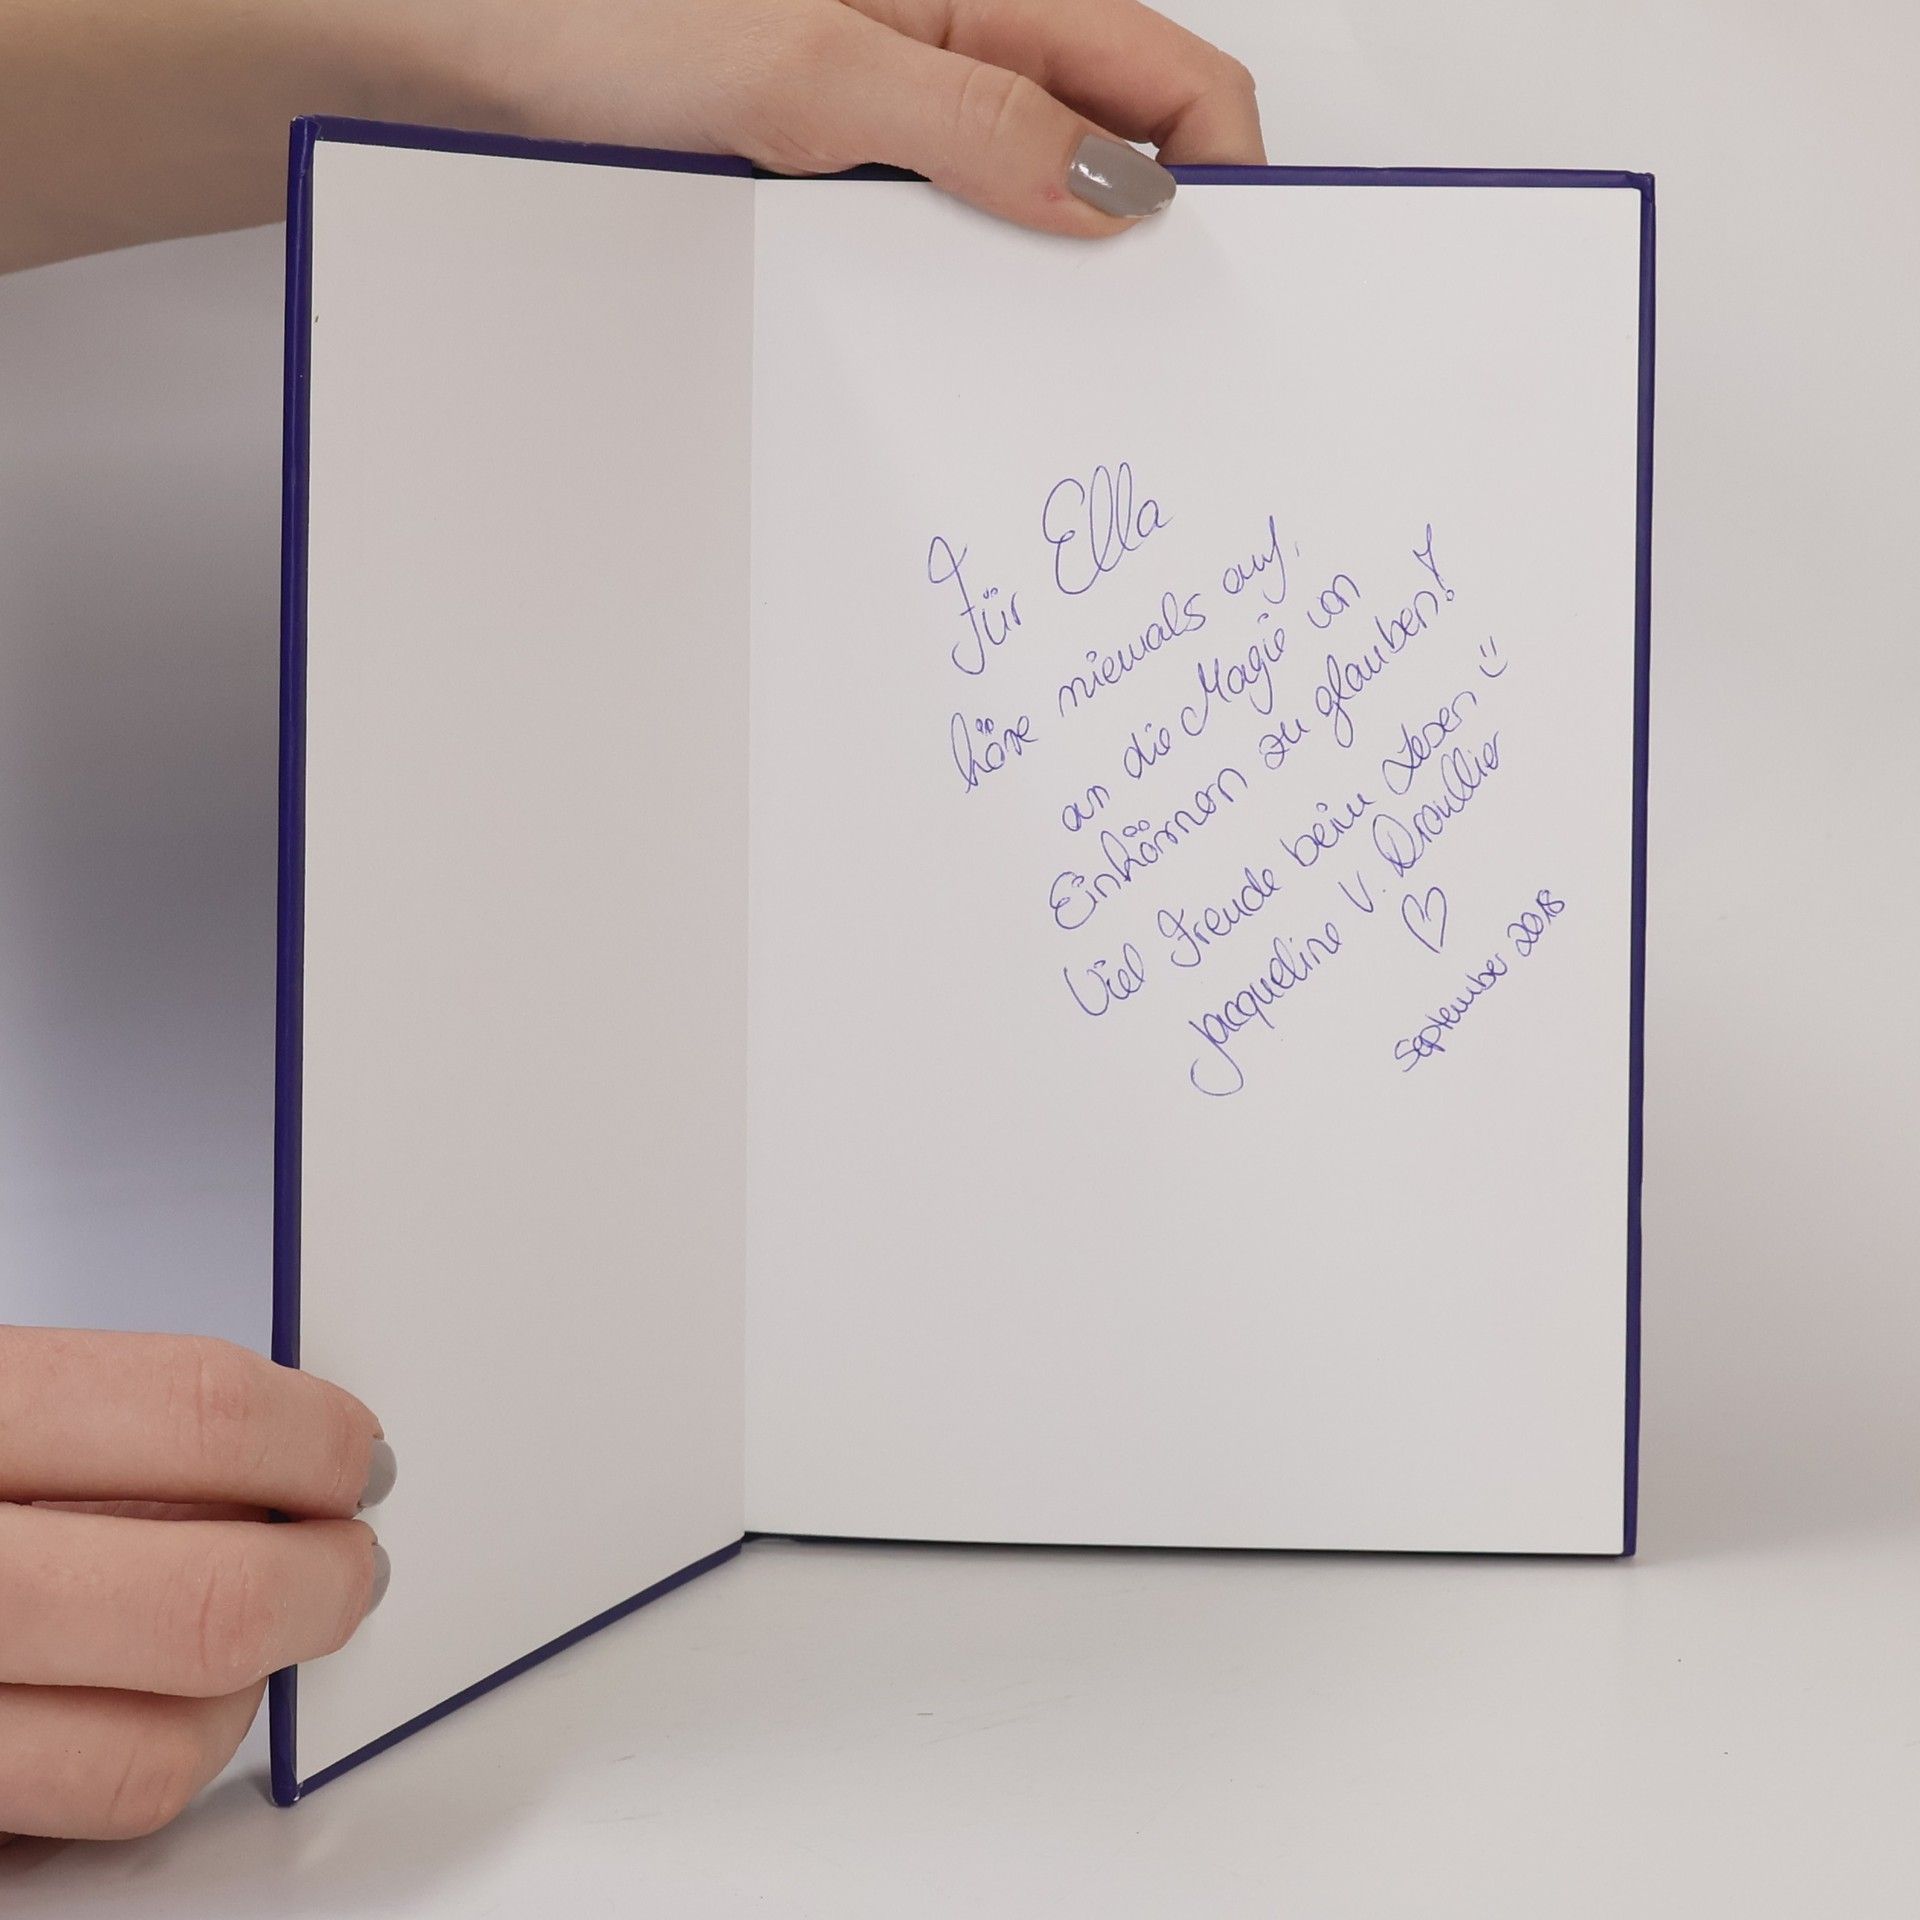 Für Ella
höre niemals auf,
an die Magie von
Einhörnern zu glauben!
Viel Freude beim Lesen
Jacqueline V. Droullier
September 2018